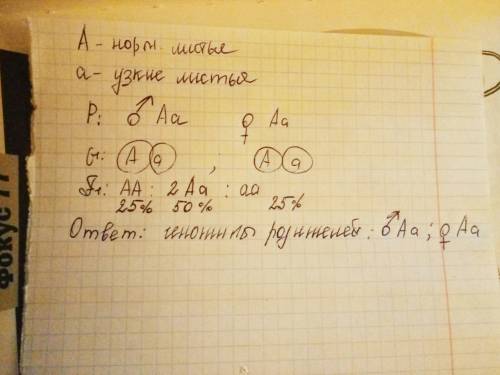 А - норм. листья
а - узкие листья
P: ♂ Аа ♀ Аа
G: А а ; А а
F₁: АА : 2 Аа : аа
25% 50% 25%
Ответ: генотипы родителей: ♂ Аа ; ♀ Аа
Фокус 77